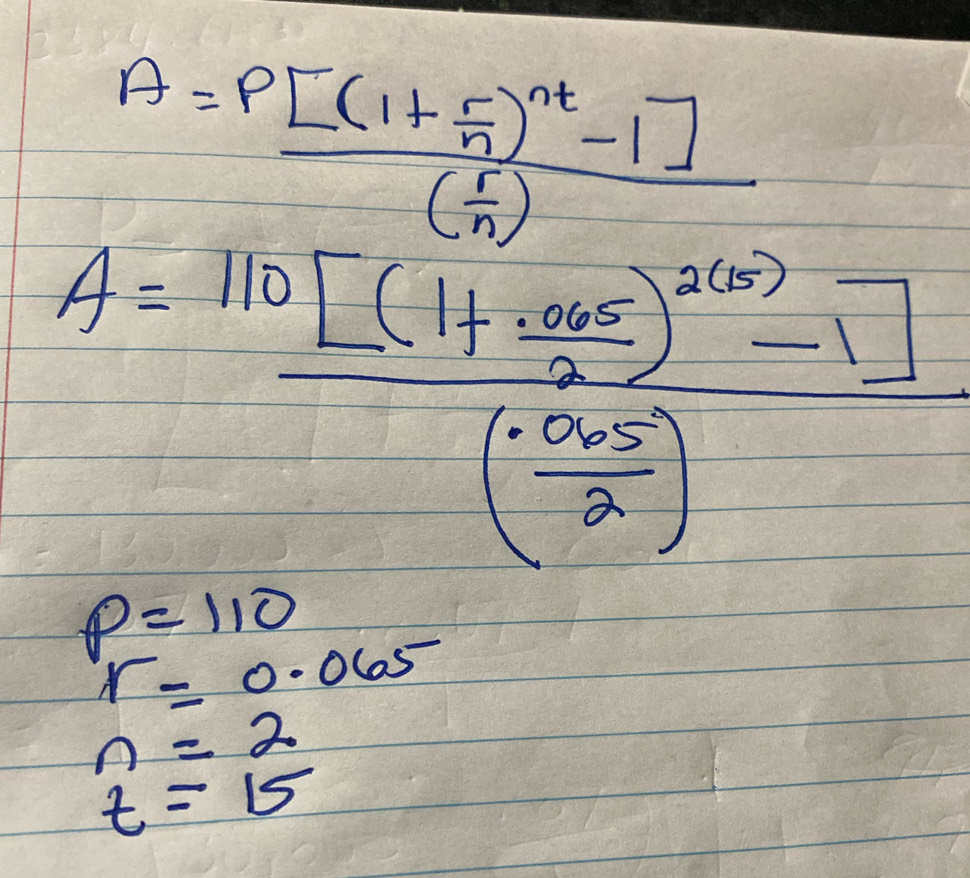 A = P[(1 + r/n)^nt - 1]
(r/n)
A = 110[(1 + .065/2)^2(15) - 1]
(.065/2)
P = 110
r = 0.065
n = 2
t = 15